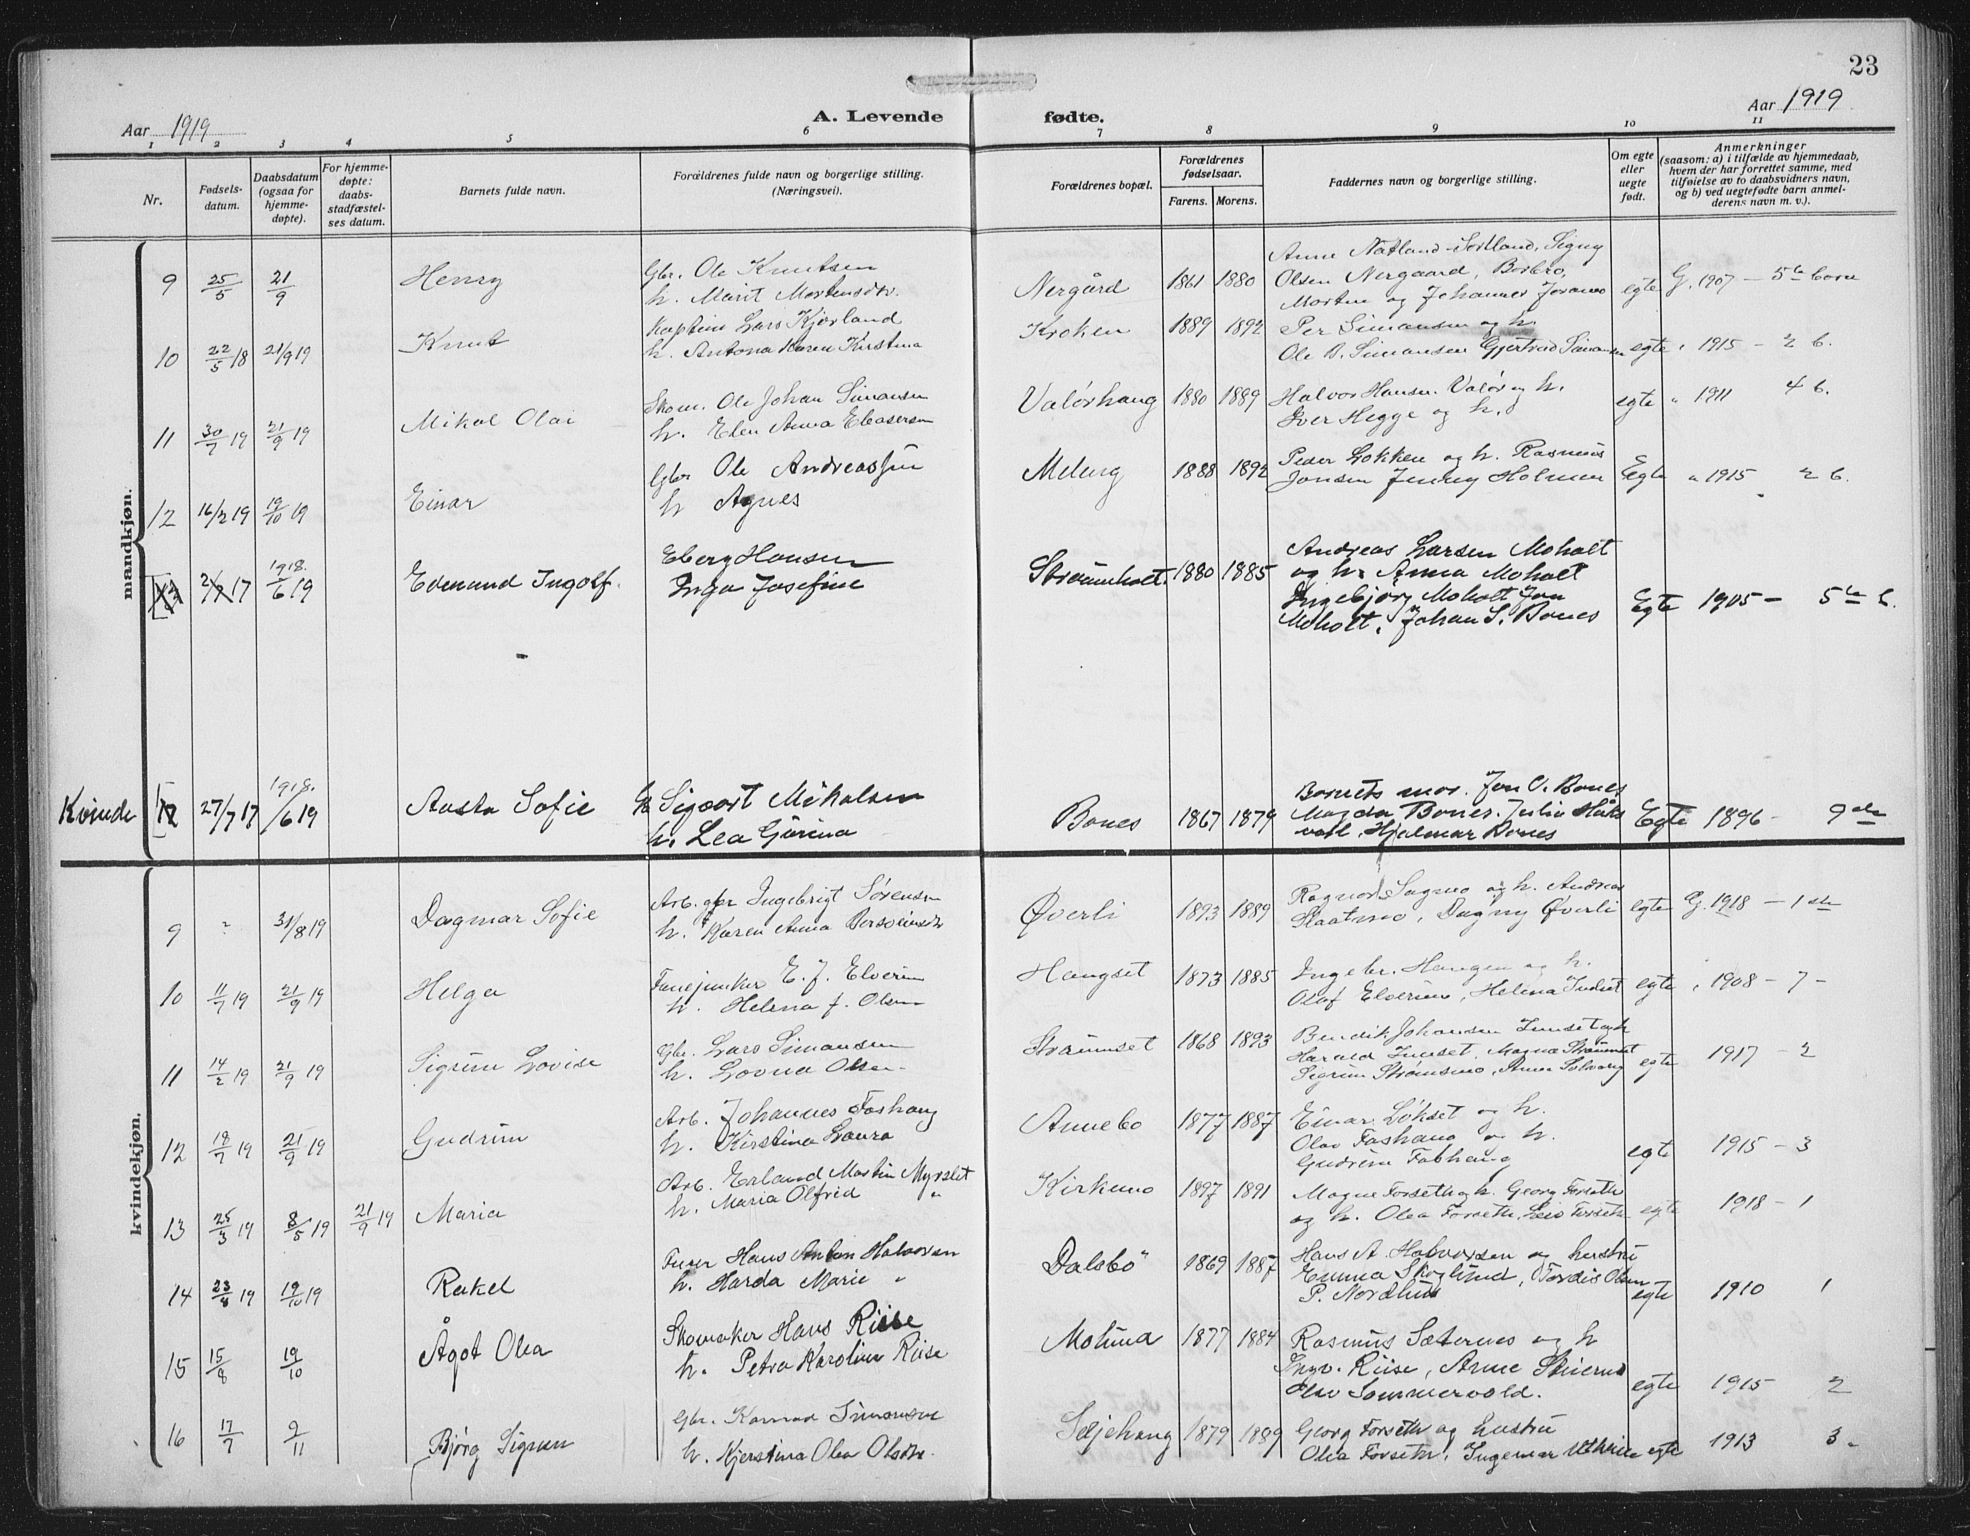 23
Aar 1919
A. Levende fødte.
Aar 1919
1 2 3 4 5 6 7 8 9 10 11
Nr.
Fødsels-
datum.
Daabsdatum
(ogsaa for
hjemme-
døpte).
For hjemme-
døpte:
daabs-
stadfæstel-
ses datum.
Barnets fulde navn.
Forældrenes fulde navn og borgerlige stilling.
(Næringsvei).
Forældrenes bopæl.
Forældrenes
fødselsaar.
Farens. Morens.
Faddernes navn og borgerlige stilling.
Om egte
eller
uegte
født.
Anmerkninger
(saasom: a) i tilfælde av hjemmedaab,
hvem der har forrettet samme, med
tilføielse av to daabsvidners navn,
og b) ved uegtefødte barn anmel-
derens navn m. v.).
mandkjøn.
9 25/5 21/9 Henry Gbr. Ole Knutsen Nergård 1861 1880 Anne Natland Sortland, Signy
h. Marit Mortensdtr. Olsen Nergaard, Borbro, egte G. 1907 - 5te barn
Morten og Johannes
10 22/5 18 21/9 19 Knut Kaptein Lars Kjørland Kroken 1889 1892 Per Simonsen og h.
h. Antona Karen Kirstina Ole B. Simonsen Gjertrud Simonsen egte " 1915 - 2 b.
11 30/7 19 21/9 19 Mikal Olai Skom. Ole Johan Simonsen Valørhaug 1880 1889 Halvor Hansen Valør og h. egte " 1911 4 b.
h. Elen Anna Eleasersen Iver Hegge og h.
12 16/2 19 19/10 19 Einar Gbr Ole Andreassen Meleng 1888 1892 Peder Løkken og h. Rasmus Egte " 1915 2 b.
h Agnes Jonsen Jenny Holmen
2/7 17 1918. /6 19 Edmund Ingolf. Eberg Hansen Strømholt 1880 1885 Andreas Larsen Moholt
Inga Josefine og h. Anna Moholt
Ingebjørg Moholt Jon Egte 1905 - 5te b.
Moholt, Johan S. Bones
Kvinde 12 27/7 17 1918. /6 19 Aasta Sofie Gb Sigvart Mikalsen Bones 1867 1879 Barnets mor. Jon O. Bones
h. Lea Gurina Magda Bones. Julia Egte 1896 - 9de
Hjalmar Bones
kvindekjøn.
9 ? 31/8 19 Dagmar Sofie Arb. Ingebrigt Sørensen Øverli 1893 1889 Ragnar Sagmo og h. Andreas egte G. 1918 - 1ste
h. Karen Anna Slaatmo, Dagny Øverli
10 11/7 19 21/9 19 Helga Fanejunker E. J. Elverum Haugset 1873 1885 Ingebr. Haugen og h.
h. Helena f. Olsen Olaf Elverum, Helena egte " 1908 - 7 -
11 14/2 19 21/9 19 Sigrun Lovise Gbr. Lars Simonsen Strømset 1868 1893 Bendik Johansen Innset og h
h. Lovna Olsen Harald Innset, Magna Strømset egte 1917 - 2
Sigrun Strømsmo, Anna Solvang
12 18/7 19 21/9 19 Gudrun Arb. Johannes Foshaug Annebo 1877 1887 Einar Løkset og h.
h. Kirstina Laura Olav Foshaug og h. egte 1915 - 3
Gudrun Foshaug
13 25/3 19 8/5 19 21/9 19 Maria Arb. Erland Martin Myrslet Kirkemo 1897 1891 Magne Forseth og h. Georg Forseth
h. Maria Olfrid " og h. Olea Forseth, Leis Forseth egte 1918 - 1
14 23/8 19 19/10 19 Rakel Furer Hans Anton Halvorsen Dalsbo 1869 1887 Hans A. Halvorsen og hustru
h. Harda Marie " Emma Skoglund, Tordis Olsen egte 1910 1
P. Nordhus
15 15/8 19/10 Ågot Olea Skomaker Hans Riise Molund 1877 1884 Rasmus Sæternes og h
h. Petra Karoline Riise Ingv. Riise, Anne egte 1915 2
Olav Sommervold.
16 17/7 9/11 Bjørg Sigrun Gbr. Konrad Simonsen Seljehaug 1879 1889 Georg Forseth og hustru
h. Kjerstina Olea Olsdtr. Olea Forseth, Ingemar egte 1913 3 -